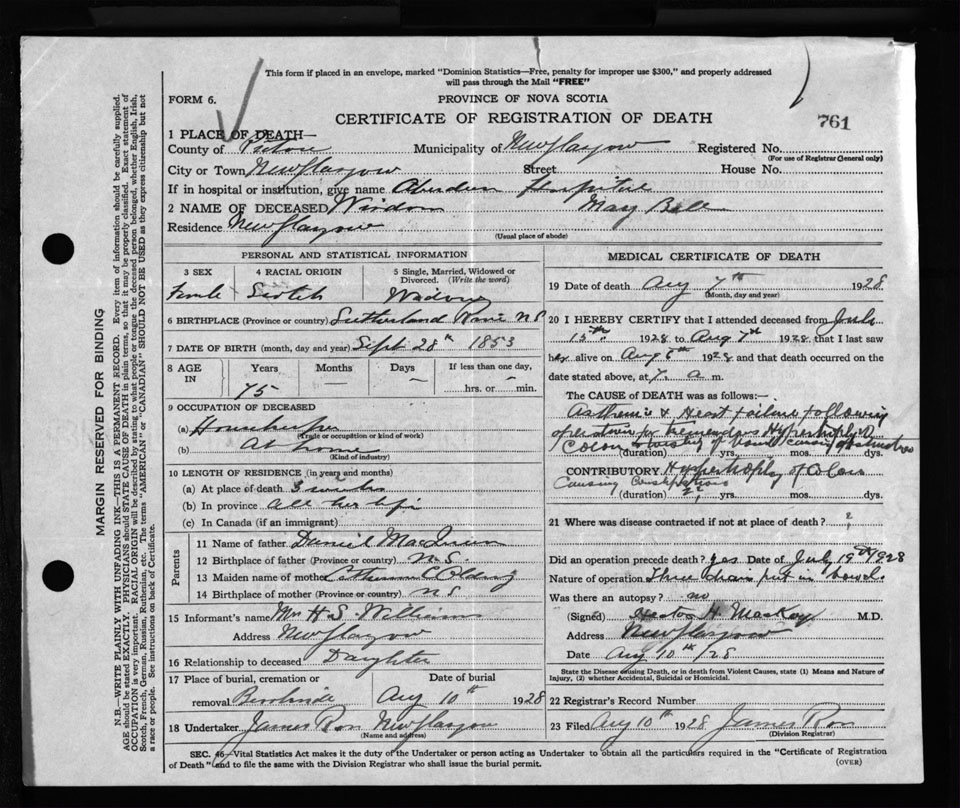 This form if placed in an envelope, marked "Dominion Statistics—Free, penalty for improper use $300," and properly addressed
will pass through the Mail "FREE"
FORM 6.
PROVINCE OF NOVA SCOTIA
CERTIFICATE OF REGISTRATION OF DEATH
761
1 PLACE OF DEATH—
County of Pictou Municipality of New Glasgow Registered No.
(For use of Registrar General only)
City or Town New Glasgow Street House No.
If in hospital or institution, give name Aberdeen Hospital
2 NAME OF DECEASED Wisdom Mary Bell
Residence New Glasgow
(Usual place of abode)
PERSONAL AND STATISTICAL INFORMATION
3 SEX 4 RACIAL ORIGIN 5 Single, Married, Widowed or
Divorced. (Write the word)
Female Scotch Widow
6 BIRTHPLACE (Province or country) Sutherland River N S
7 DATE OF BIRTH (month, day and year) Sept 28th 1853
8 AGE IN Years Months Days If less than one day,
75 — — hrs. or min.
9 OCCUPATION OF DECEASED
(a) Housekeeper
(Trade or occupation or kind of work)
(b) At home
(Kind of industry)
10 LENGTH OF RESIDENCE (in years and months)
(a) At place of death 3 weeks
(b) In province all her life
(c) In Canada (if an immigrant)
Parents
11 Name of father Daniel MacQueen
12 Birthplace of father (Province or country) N.S
13 Maiden name of mother Catherine
14 Birthplace of mother (Province or country) N S
15 Informant's name Mrs H. S. Williams
Address New Glasgow
16 Relationship to deceased Daughter
17 Place of burial, cremation or removal Date of burial
Aug 10th 1928
18 Undertaker James Ross New Glasgow
(Name and address)
MEDICAL CERTIFICATE OF DEATH
19 Date of death Aug 7th 1928
(Month, day and year)
20 I HEREBY CERTIFY that I attended deceased from July
15th 1928 to Aug 7th 1928 that I last saw
her alive on Aug 6th 1928 and that death occurred on the
date stated above, at 7 a m.
The CAUSE of DEATH was as follows:
Asthenia & Heart Failure following
operation for tremendous Hypertrophy of
Colon
(duration) yrs. mos. dys.
CONTRIBUTORY Hypertrophy of Colon
Causing Constipation
(duration) yrs. mos. dys.
21 Where was disease contracted if not at place of death? ?
Did an operation precede death? yes Date of July 19th 1928
Nature of operation Three drains put in bowel
Was there an autopsy? no
(Signed) H. MacKay M.D.
Address New Glasgow
Date Aug 10th /28
State the Disease causing Death, or in death from Violent Causes, state (1) Means and Nature of
Injury, (2) whether Accidental, Suicidal or Homicidal.
22 Registrar's Record Number
23 Filed Aug 10th 1928 James Ross
(Division Registrar)
SEC. 46—Vital Statistics Act makes it the duty of the Undertaker or person acting as Undertaker to obtain all the particulars required in the "Certificate of Registration
of Death" and to file the same with the Division Registrar who shall issue the burial permit.
(OVER)
MARGIN RESERVED FOR BINDING
N.B.—WRITE PLAINLY WITH UNFADING INK—THIS IS A PERMANENT RECORD. Every item of information should be carefully supplied.
AGE should be stated EXACTLY. PHYSICIANS should STATE CAUSE OF DEATH in plain terms, so that it may be properly classified. Exact statement of
OCCUPATION is very important. RACIAL ORIGIN will be described by stating to what people or tongue the deceased person belonged, whether English, Irish,
Scotch, French, German, Russian, Ruthenian, etc. The terms "AMERICAN" or "CANADIAN" SHOULD NOT BE USED as they express citizenship but not
a race or people. See instructions on back of Certificate.